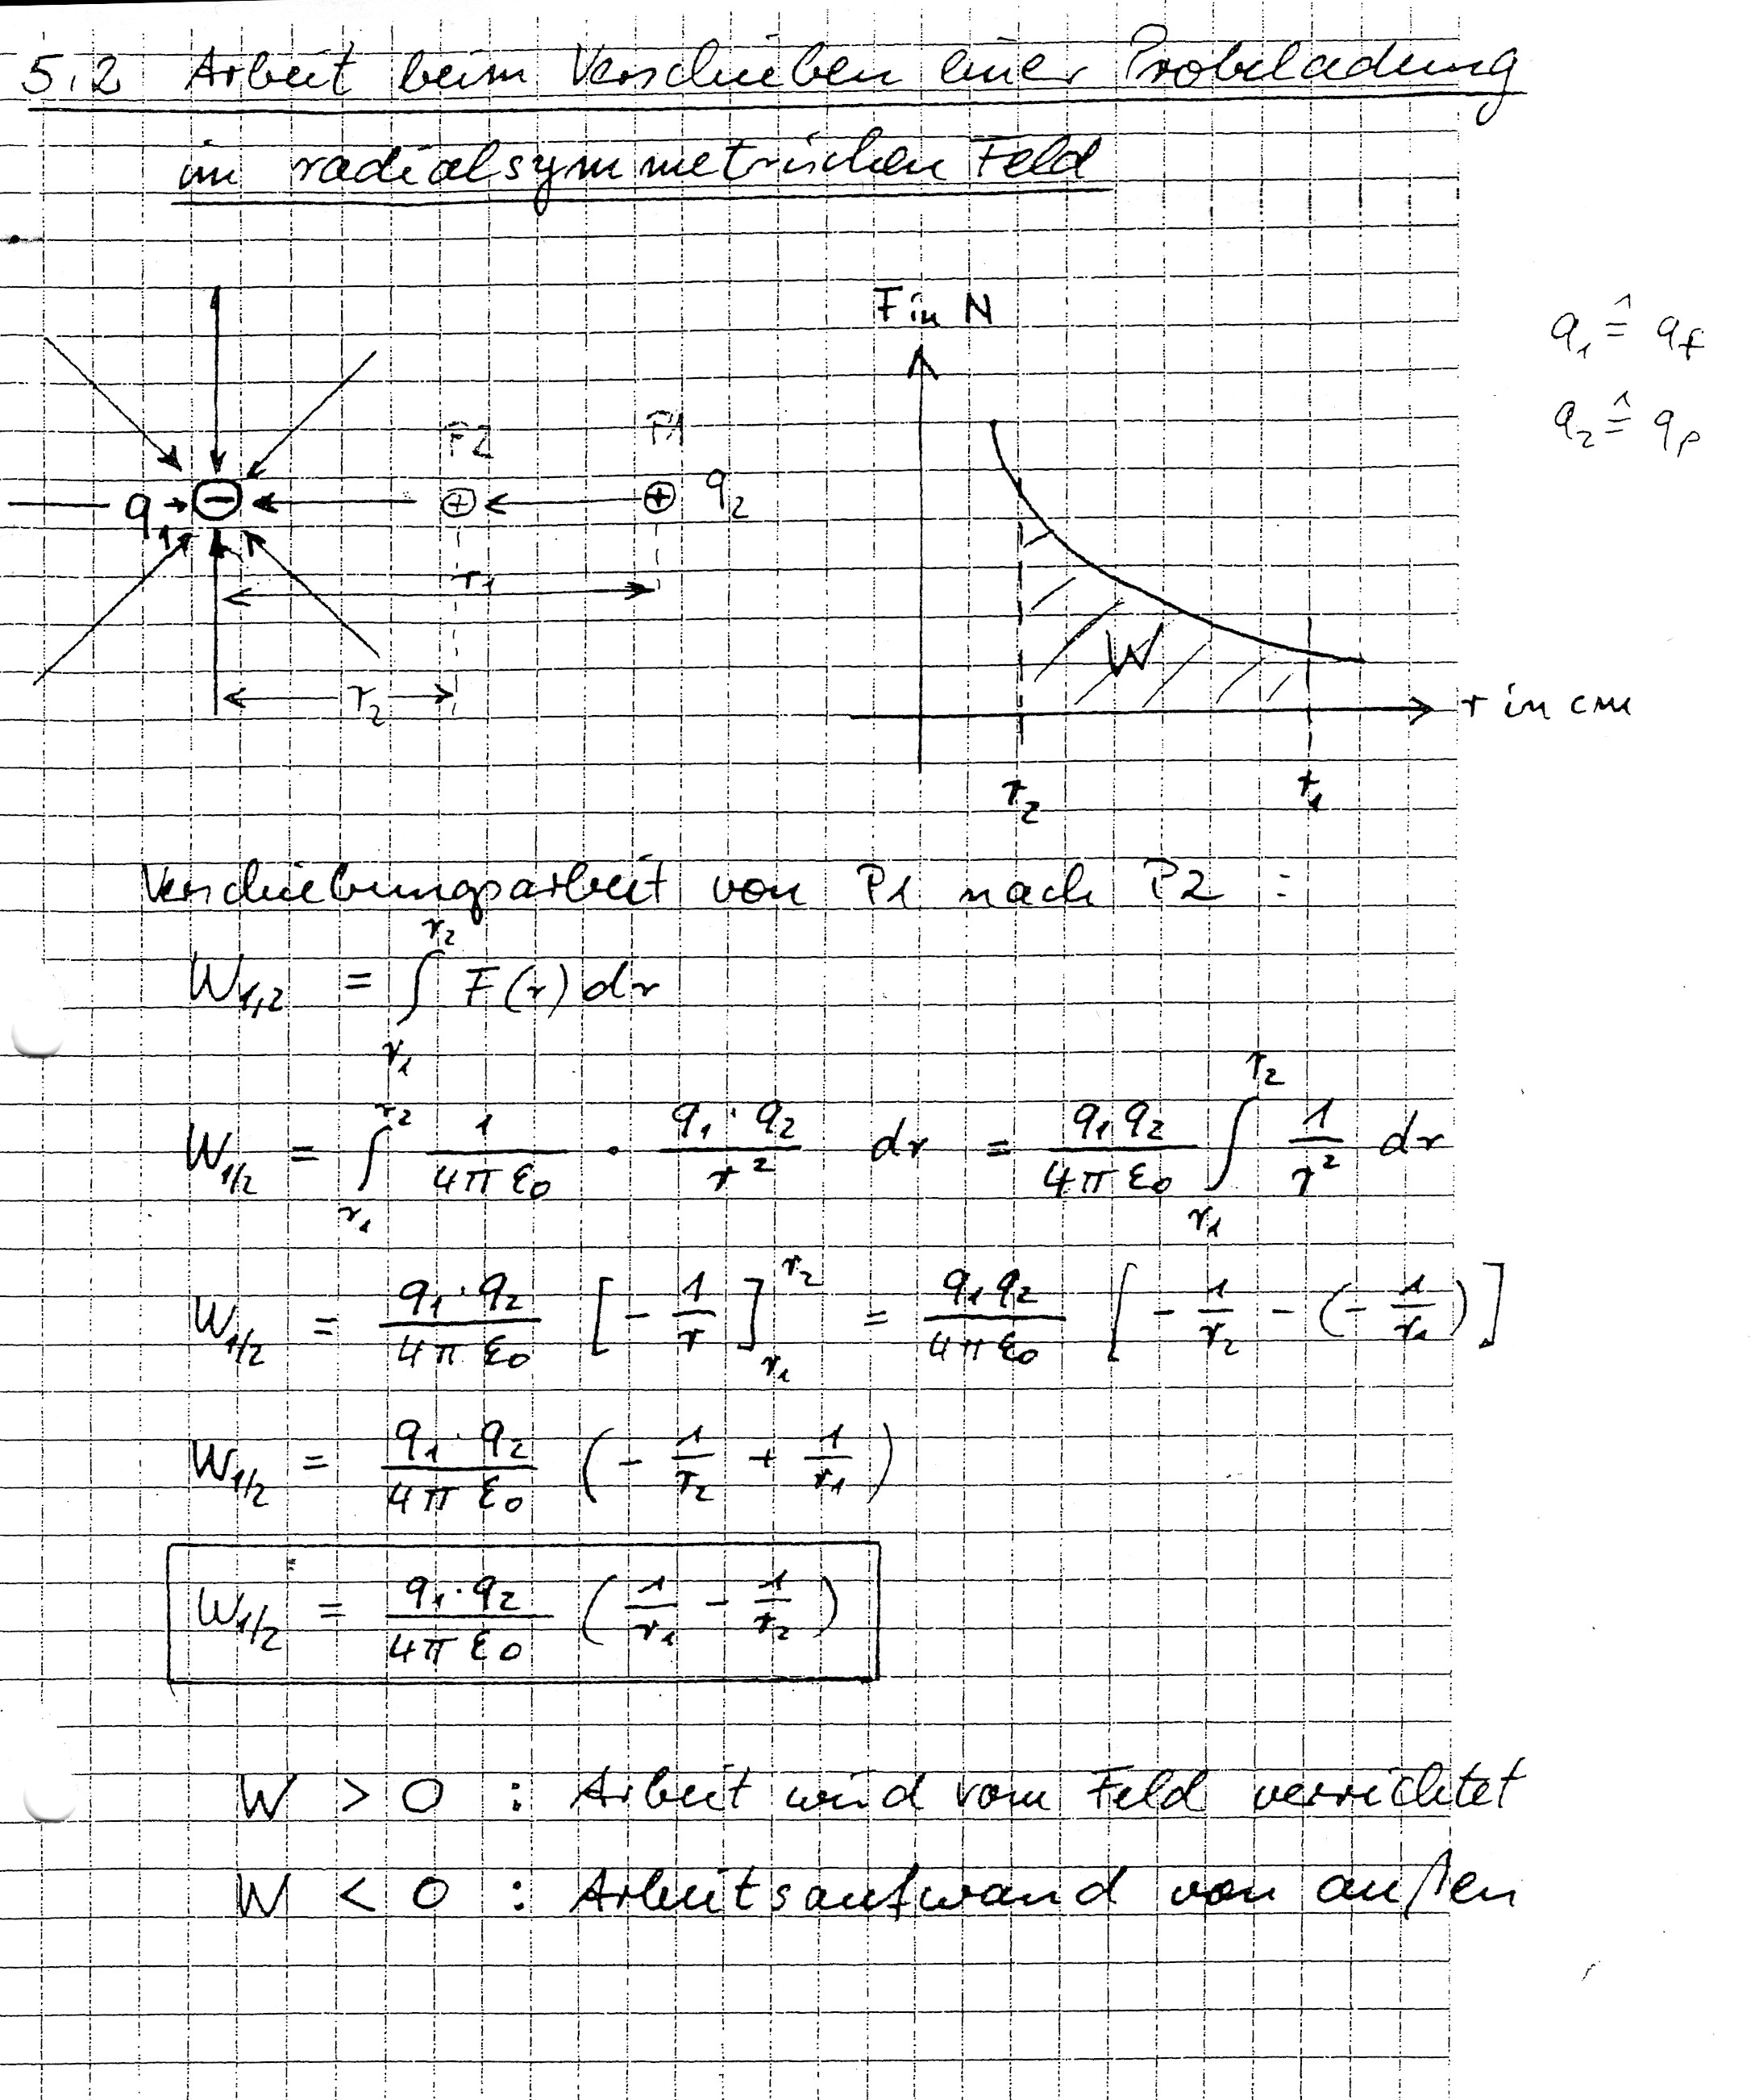 5.2 Arbeit beim Verschieben einer Probeladung
im radialsymmetrischen Feld
F in N
q₁ ≙ q_f
q₂ ≙ q_p
P2 P1
q₁ ⊖ ⊕ ⊕ q₂
r₁
W
r₂
r in cm
r₂ r₁
Verschiebungsarbeit von P1 nach P2 :
W₁,₂ = ∫_{r₁}^{r₂} F(r) dr
W₁/₂ = ∫_{r₁}^{r₂} 1/(4π ε₀) · (q₁ · q₂)/r² dr = (q₁ q₂)/(4π ε₀) ∫_{r₁}^{r₂} 1/r² dr
W₁/₂ = (q₁ · q₂)/(4π ε₀) [ - 1/r ]_{r₁}^{r₂} = (q₁ q₂)/(4π ε₀) [ - 1/r₂ - (- 1/r₁) ]
W₁/₂ = (q₁ · q₂)/(4π ε₀) ( - 1/r₂ + 1/r₁ )
W₁/₂ = (q₁ · q₂)/(4π ε₀) ( 1/r₁ - 1/r₂ )
W > 0 : Arbeit wird vom Feld verrichtet
W < 0 : Arbeitsaufwand von außen